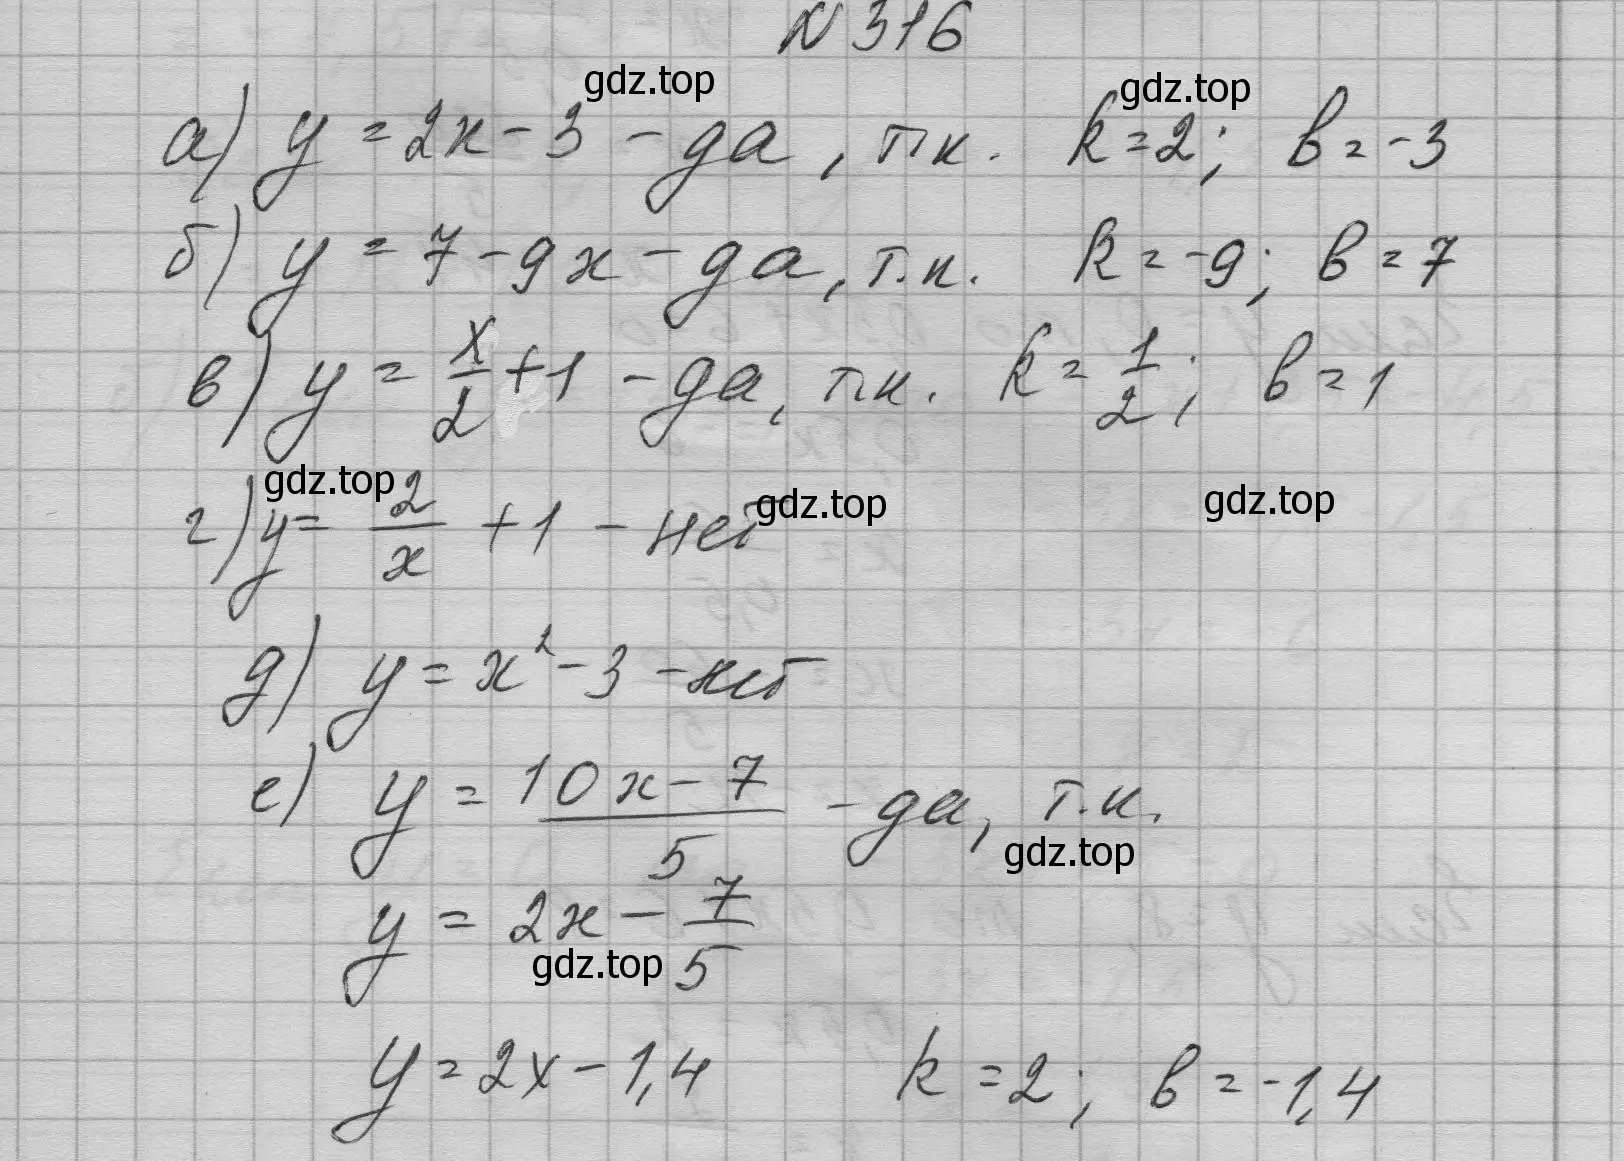 N 316
gdz.top gdz.top
а) y = 2x - 3 - да, т.к. k = 2; b = -3
б) y = 7 - 9x - да, т.к. k = -9; b = 7
в) y = x/2 + 1 - да, т.к. k = 1/2; b = 1
gdz.top gdz.top gdz.top
г) y = 2/x + 1 - нет
д) y = x² - 3 - нет
е) y = (10x - 7)/5 - да, т.к.
gdz.top
y = 2x - 7/5
gdz.top
y = 2x - 1,4 k = 2; b = -1,4